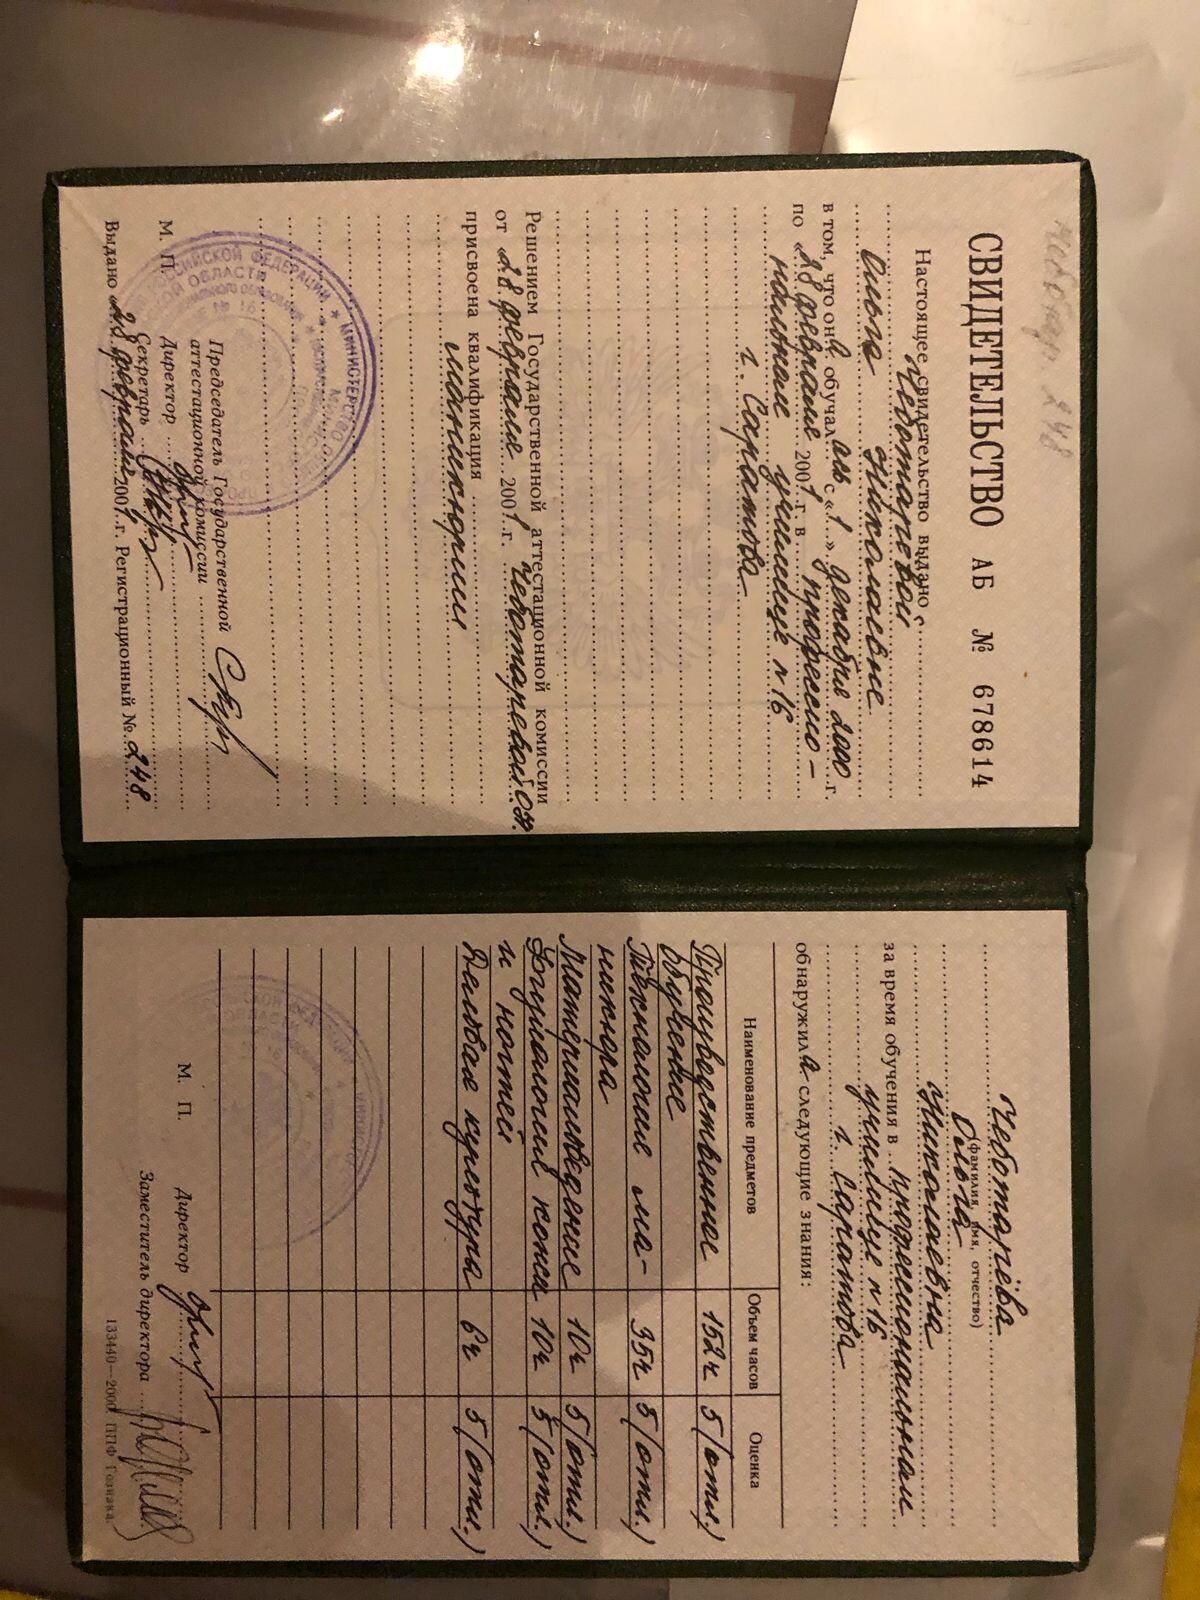 СВИДЕТЕЛЬСТВО АБ № 678614
Настоящее свидетельство выдано
Чеботаревой
Ольге Николаевне
в том, что она обучалась с «1» декабря 2000 г.
по «28» февраля 2001 г. в професcио-
нальном училище n 16
г. Саратова
Решением Государственной аттестационной комиссии
от «28» февраля 2001 г. Чеботаревой О.Н.
присвоена квалификация
маникюрши
Председатель Государственной
аттестационной комиссии
М. П. Директор
Секретарь
Выдано «28» февраля 2001 г. Регистрационный № 248
Чеботарёва
(фамилия, имя, отчество)
Ольга
Николаевна
за время обучения в профессиональном
училище n 16
г. Саратова
обнаружила следующие знания:
Наименование предметов Объем часов Оценка
Производственное 152ч 5/отл.)
обучение
Технология ма- 35ч 5/отл.)
никюра
Материаловедение 10ч 5/отл.)
Физиология кожи 10ч 5/отл.)
и ногтей
Деловая культура 6ч 5/отл.)
М. П. Директор
Заместитель директора
133440—2000. ППФ Гознака.